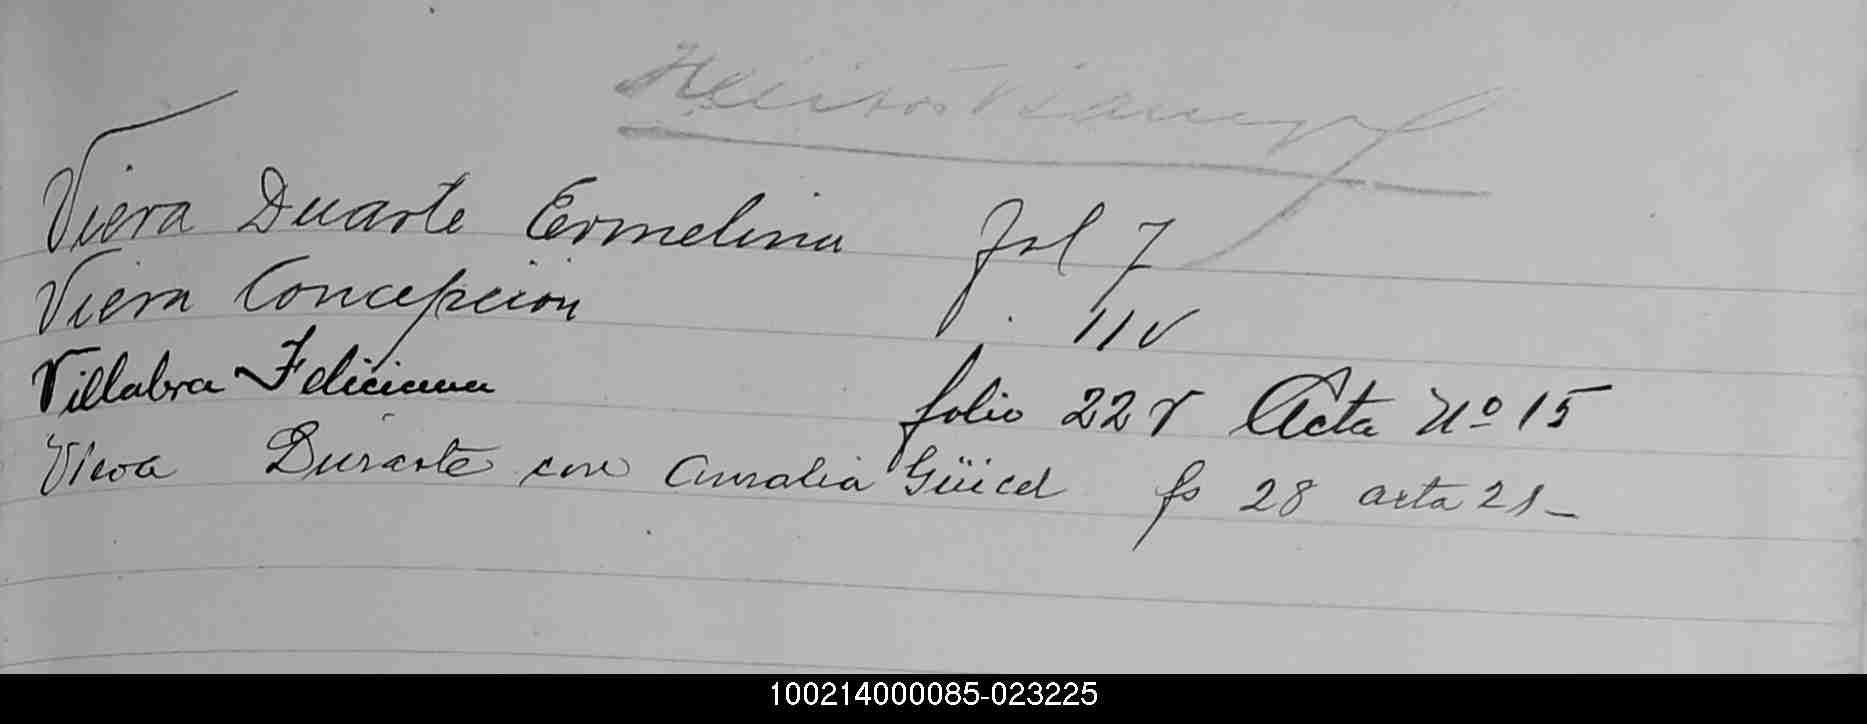 Viera Duarte Ermelina fol 7
Viera Concepcion f. 11v
Villabra Feliciana folio 22 v Acta Nº 15
Viera Durarte con Amalia Güicel fs 28 acta 21_
100214000085-023225